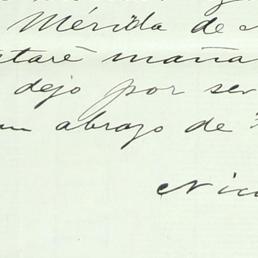 Mérida de
taré maña
dejo por ser
un abrazo de
Nico